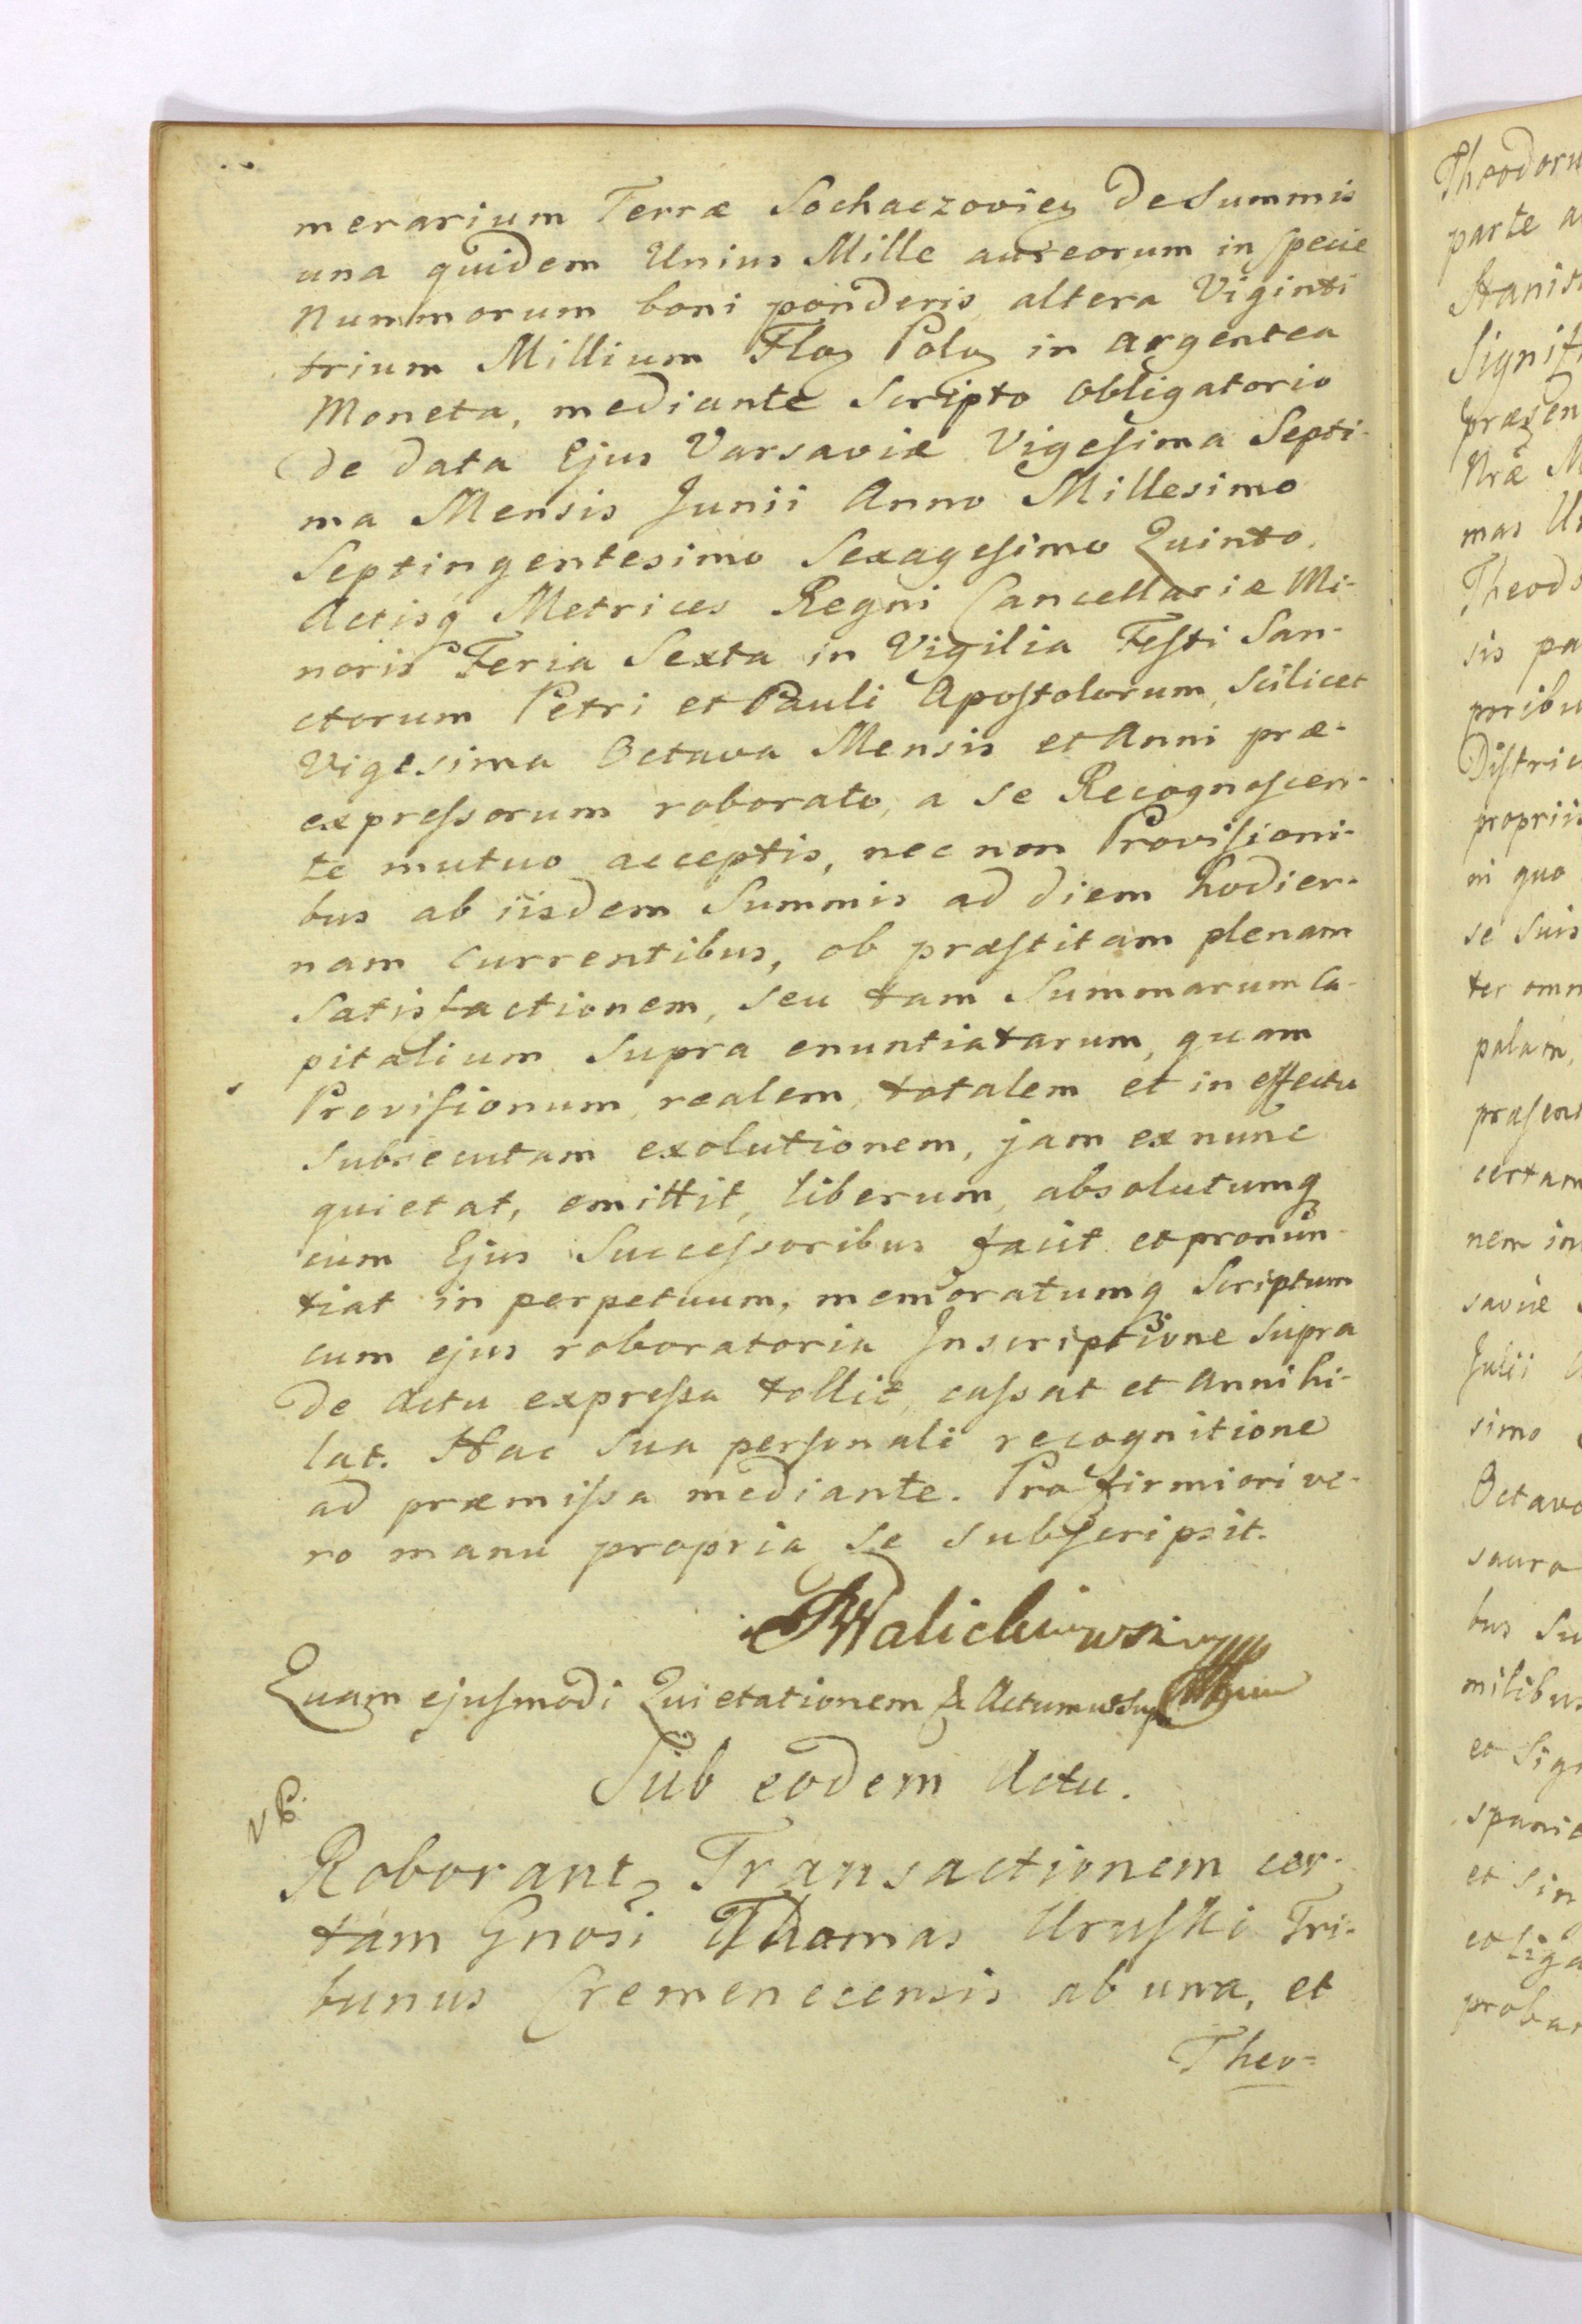 merarium Terræ Sochaczoviey De Summis
una quidem Unius Mille aureorum in specie
Nummorum boni ponderis, altera Viginti
trium Millium Floy Poloy in argentea
Moneta, mediante Scripto Obligatorio
de data Ejus Varsaviæ Vigesima Septi-
ma Mensis Junii Anno Millesimo
Septingentesimo Sexagesimo Quinto.
Actisq Metrices Regni Cancellariæ Mi-
noris Feria Sexta in Vigilia Festi San-
ctorum Petri et Pauli Apostolorum, Scilicet
Vigesima Octava Mensis et Anni præ-
expressorum roborato, a se Recognoscen-
te mutuo acceptis, nec non Provisioni-
bus ab iisdem Summis ad diem hodier-
nam currentibus, ob præstitam plenam
Satisfactionem, seu tam Summarum Ca-
pitalium supra enuntiatarum, quam
Provisionum, realem, totalem et in effectu
subsecutam exolutionem, jam ex nunc
quietat, emittit, liberum, absolutumq
cum Ejus Successoribus facit et pronun-
tiat in perpetuum, memoratumq Scriptum
cum ejus roboratoria Inscriptione supra
de Actu expressa tollit, cassat et Annihi-
lat. Hac sua personali recognitione
ad præmissa mediante. Pro firmiori ve-
ro manu propria se subscripsit.
Walichnowski
Quam ejusmodi Quietationem
Sub eodem Actu.
Roborant Transactionem cer-
tam Gnosi Thomas Uruski Tri-
bunus Cremenecensis ab una, et
Theo-
Theodoru
parte a
Stanis
Signif
præsen
Nræ M
mas Ur
Theodo
sis pa
oribu
Distric
propriis
ni quo
se suis
ter omn
palam,
præsent
certam
nem in
saviæ
Julii
simo
Octavo
saura
bus Su
milibus
et Sig
et sin
et Liga
probar